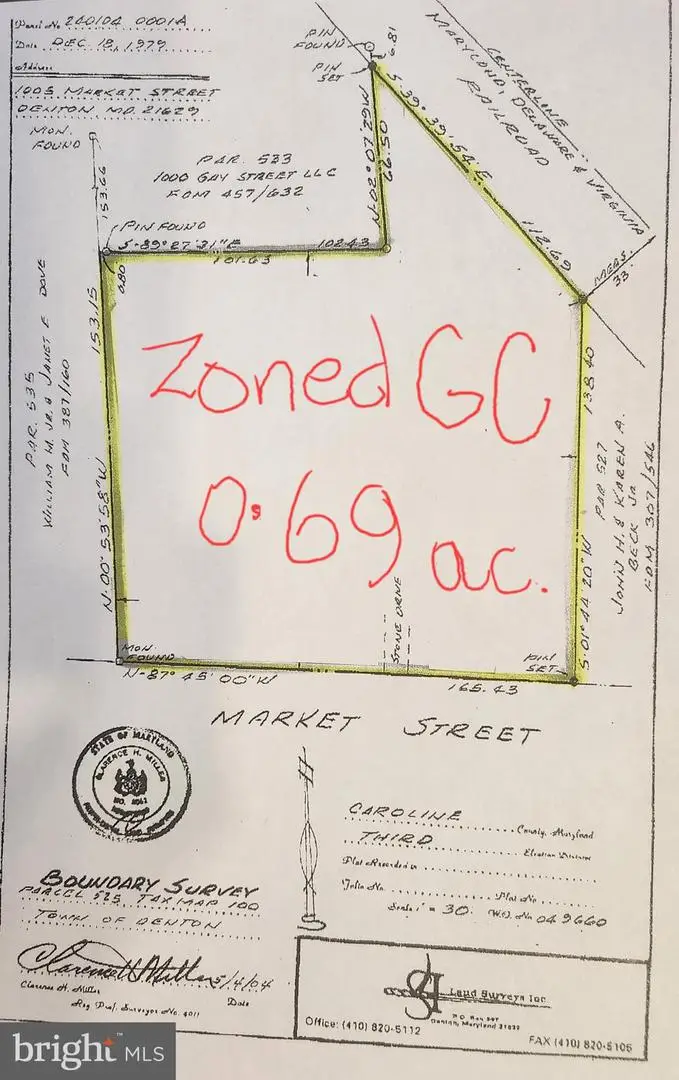 Panel No. 240104 0001A
Date DEC. 18, 1979
Address
1005 MARKET STREET
DENTON, MD. 21629
MON. FOUND
153.66
PIN FOUND
PIN SET
6.81
CENTERLINE
MARYLAND, DELAWARE & VIRGINIA
RAILROAD
PAR. 533
1000 GAY STREET LLC
FDM 457/632
N-02° 07' 29" W
66.50
S 39° 39' 54" E
112.69
MEAS.
33.
PIN FOUND
S-89° 27' 31" E
102.43
101.63
0.80
153.15
N-00° 53' 58" W
PAR. 535
WILLIAM H. JR. & JANET E DOVE
FDM 387/160
Zoned GC
0.69 ac.
138.40
S-01° 44' 20" W
PAR 527
JOHN H. & KAREN A.
BECK JR.
FDM 307/546
STONE DRIVE
MON. FOUND
PIN SET
N-87° 45' 00" W
165.43
MARKET STREET
STATE OF MARYLAND
CLARENCE H. MILLER
N
S
CAROLINE County, Maryland
THIRD Election District
Plat Recorded in
Folio No. Plat No.
Scale 1" = 30. W.O. No 049660
BOUNDARY SURVEY
PARCEL 525, TAX MAP 100
TOWN OF DENTON
Clarence H. Miller 5/4/04
Clarence H. Miller Date
Reg. Prof. Surveyor No. 4011
Land Surveys Inc.
Denton, Maryland 21629
Office: (410) 820-5112
FAX (410) 820-5106
bright MLS